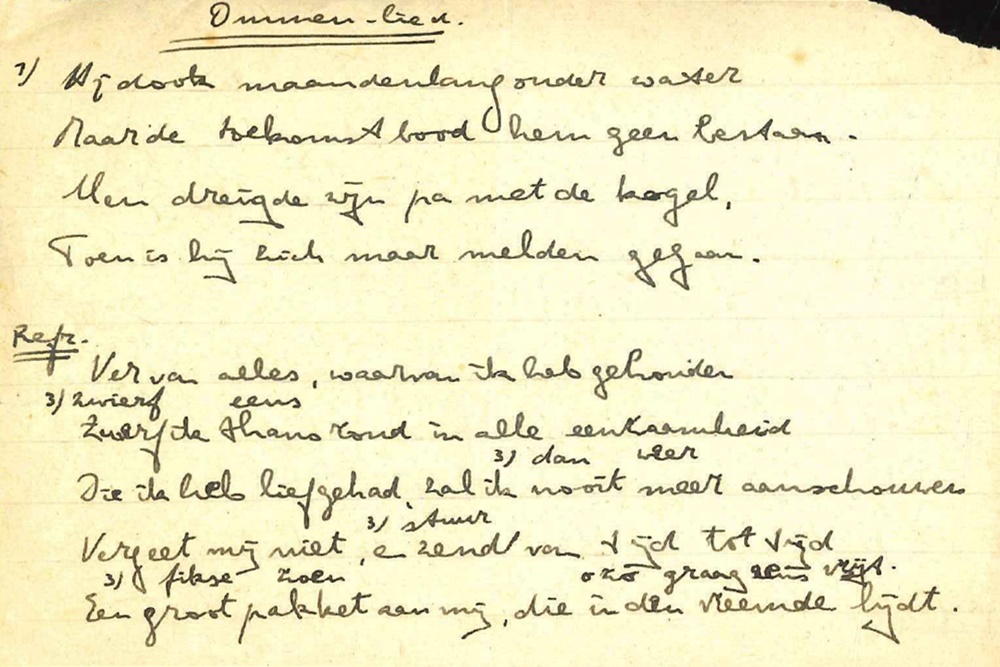 Ommen-lied.
1) Hij dook maandenlang onder water
Maar de toekomst bood hem geen bestaan.
Men dreigde zijn pa met de kogel,
Toen is hij zich maar melden gegaan.
Refr.
Ver van alles, waarvan ik heb gehouden
3) zwierf eens
Zwerf ik thans rond in alle eenzaamheid
3) dan weer
Die ik heb liefgehad, zal ik nooit meer aanschouwen
3) 'stuur
Vergeet mij niet, en zend van tijd tot tijd
3) fikse zoen o zo graag eens vrijt.
Een groot pakket aan mij, die in den vreemde lijdt.